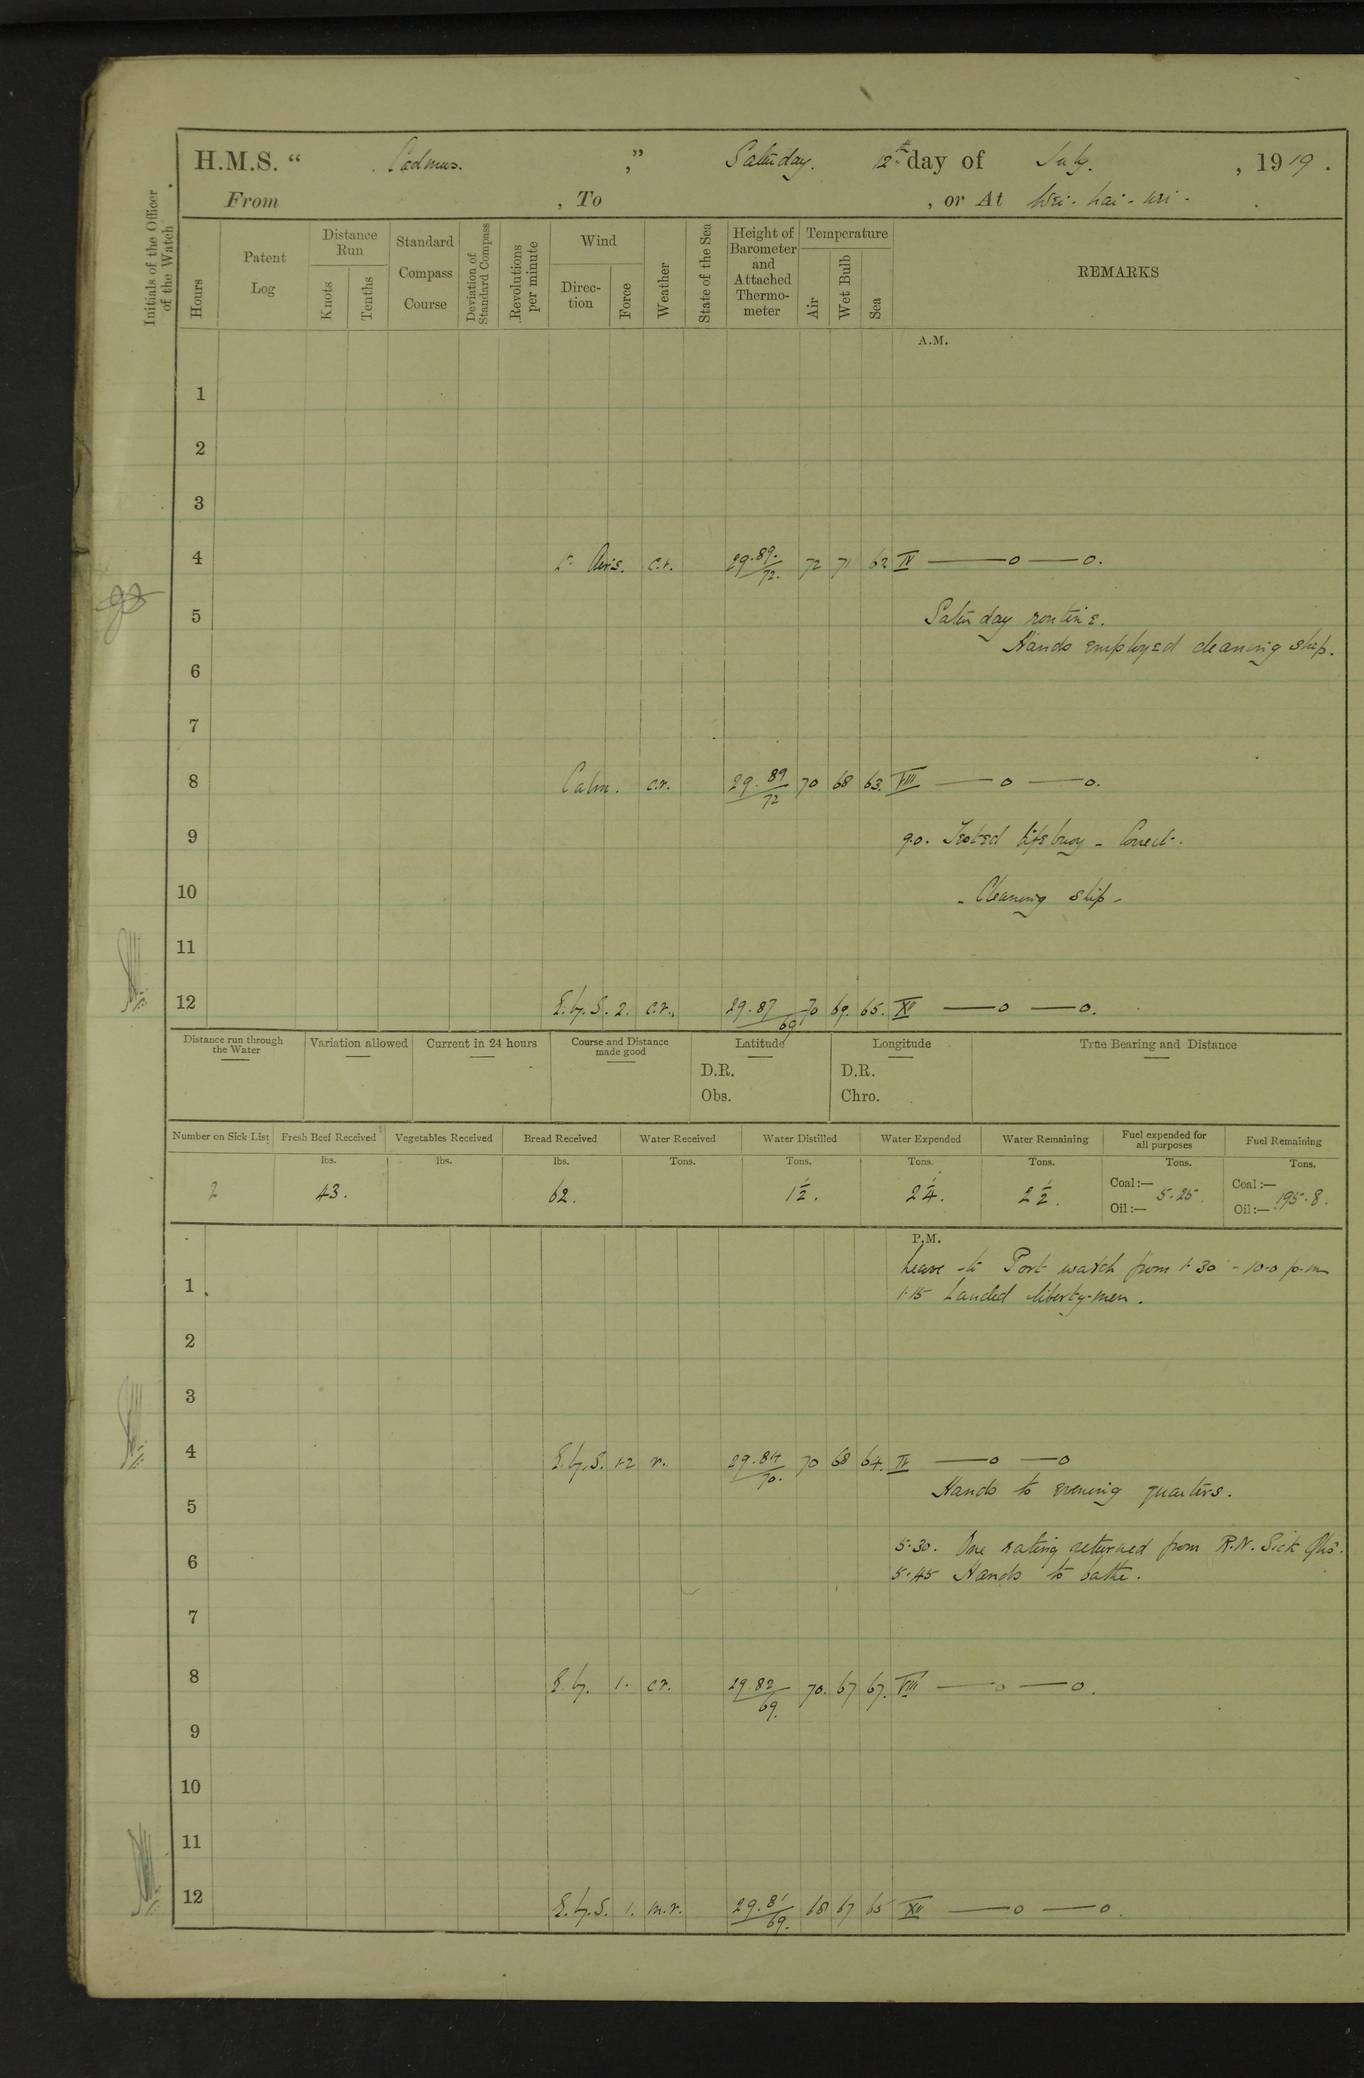 H.M.S. “ Cadmus. ,” Saturday. 12th day of July. , 1919.
From , To , or At Wei-hai-wei-
Initials of the Officer of the Watch
Hours
Patent Log
Distance Run
Knots
Tenths
Standard Compass Course
Deviation of Standard Compass
Revolutions per minute
Wind
Direction
Force
Weather
State of the Sea
Height of Barometer and Attached Thermometer
Temperature
Air
Wet Bulb
Sea
REMARKS
A.M.
1
2
3
4 Airs. c.r. 29.89./72. 72 71 62 IV —o —o.
5 Saturday routine.
Hands employed cleaning ship.
6
7
8 Calm. c.r. 29.89/72 70 68 63. VIII —o —o.
9 9.0. Tested lifebuoy - Correct.
10 - Cleaning ship -
11
12 E.by.S. 2. c.r. 29.87/69 70 69. 65. XII —o —o.
Distance run through the Water
Variation allowed
Current in 24 hours
Course and Distance made good
Latitude
D.R.
Obs.
Longitude
D.R.
Chro.
True Bearing and Distance
Number on Sick List
Fresh Beef Received
Vegetables Received
Bread Received
Water Received
Water Distilled
Water Expended
Water Remaining
Fuel expended for all purposes
Fuel Remaining
lbs. lbs. lbs. Tons. Tons. Tons. Tons. Tons. Tons.
2 43. 62. 1½. 2¼. 2½. Coal:— 5.25. Coal:— 195.8.
Oil:— Oil:—
P.M.
Leave to Port watch from 1.30 - 10.0 p.m
1 1.15 Landed liberty-men.
2
3
4 E.by.S. 1.2 r. 29.84/70. 70 68 64. IV —o —o
Hands to evening quarters.
5
5.30. One rating returned from R.N. Sick Qrs.
6 5.45 Hands to bathe.
7
8 E.by. 1. c.r. 29.82/69. 70. 67 67. VIII —o —o.
9
10
11
12 E.by.S. 1. m.r. 29.81/69. 68 67 65 XII —o —o.